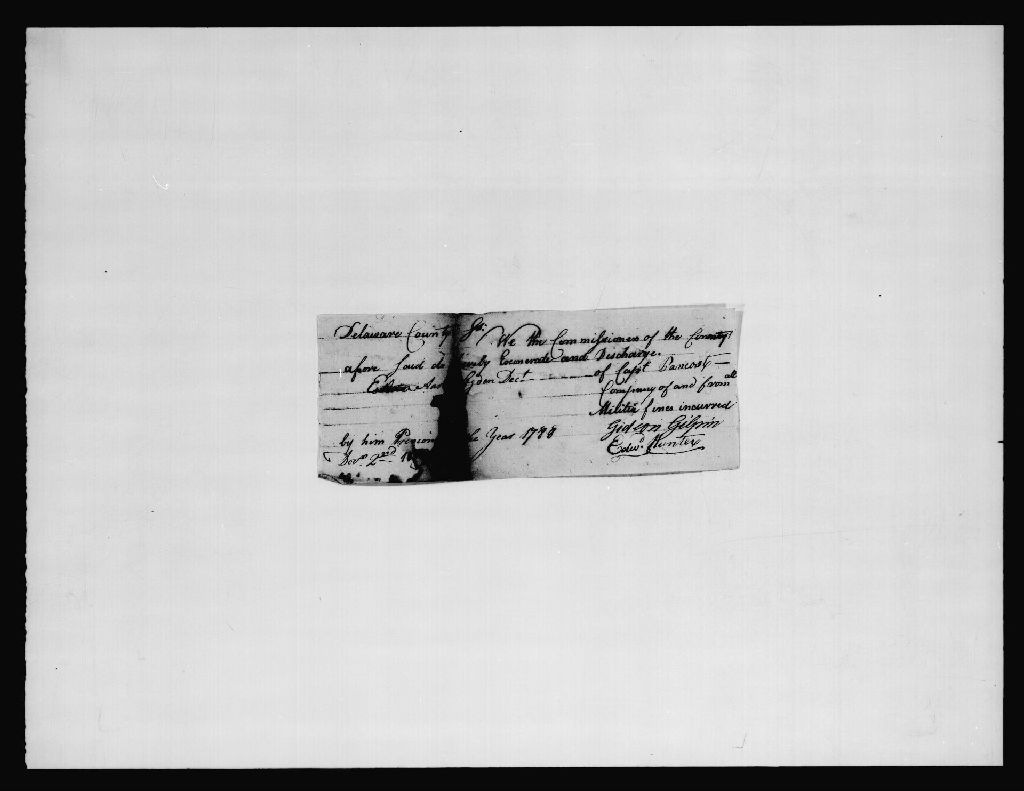 Delaware County Ss: We the Commissioners of the County
afore Said do hereby Exonerate and Discharge
Decd. of Capt Pancost
Company of and from all
Militia fines incurred
by him Year 1790
Gideon Gilpin
Decr. 2nd
Edwd. Hunter